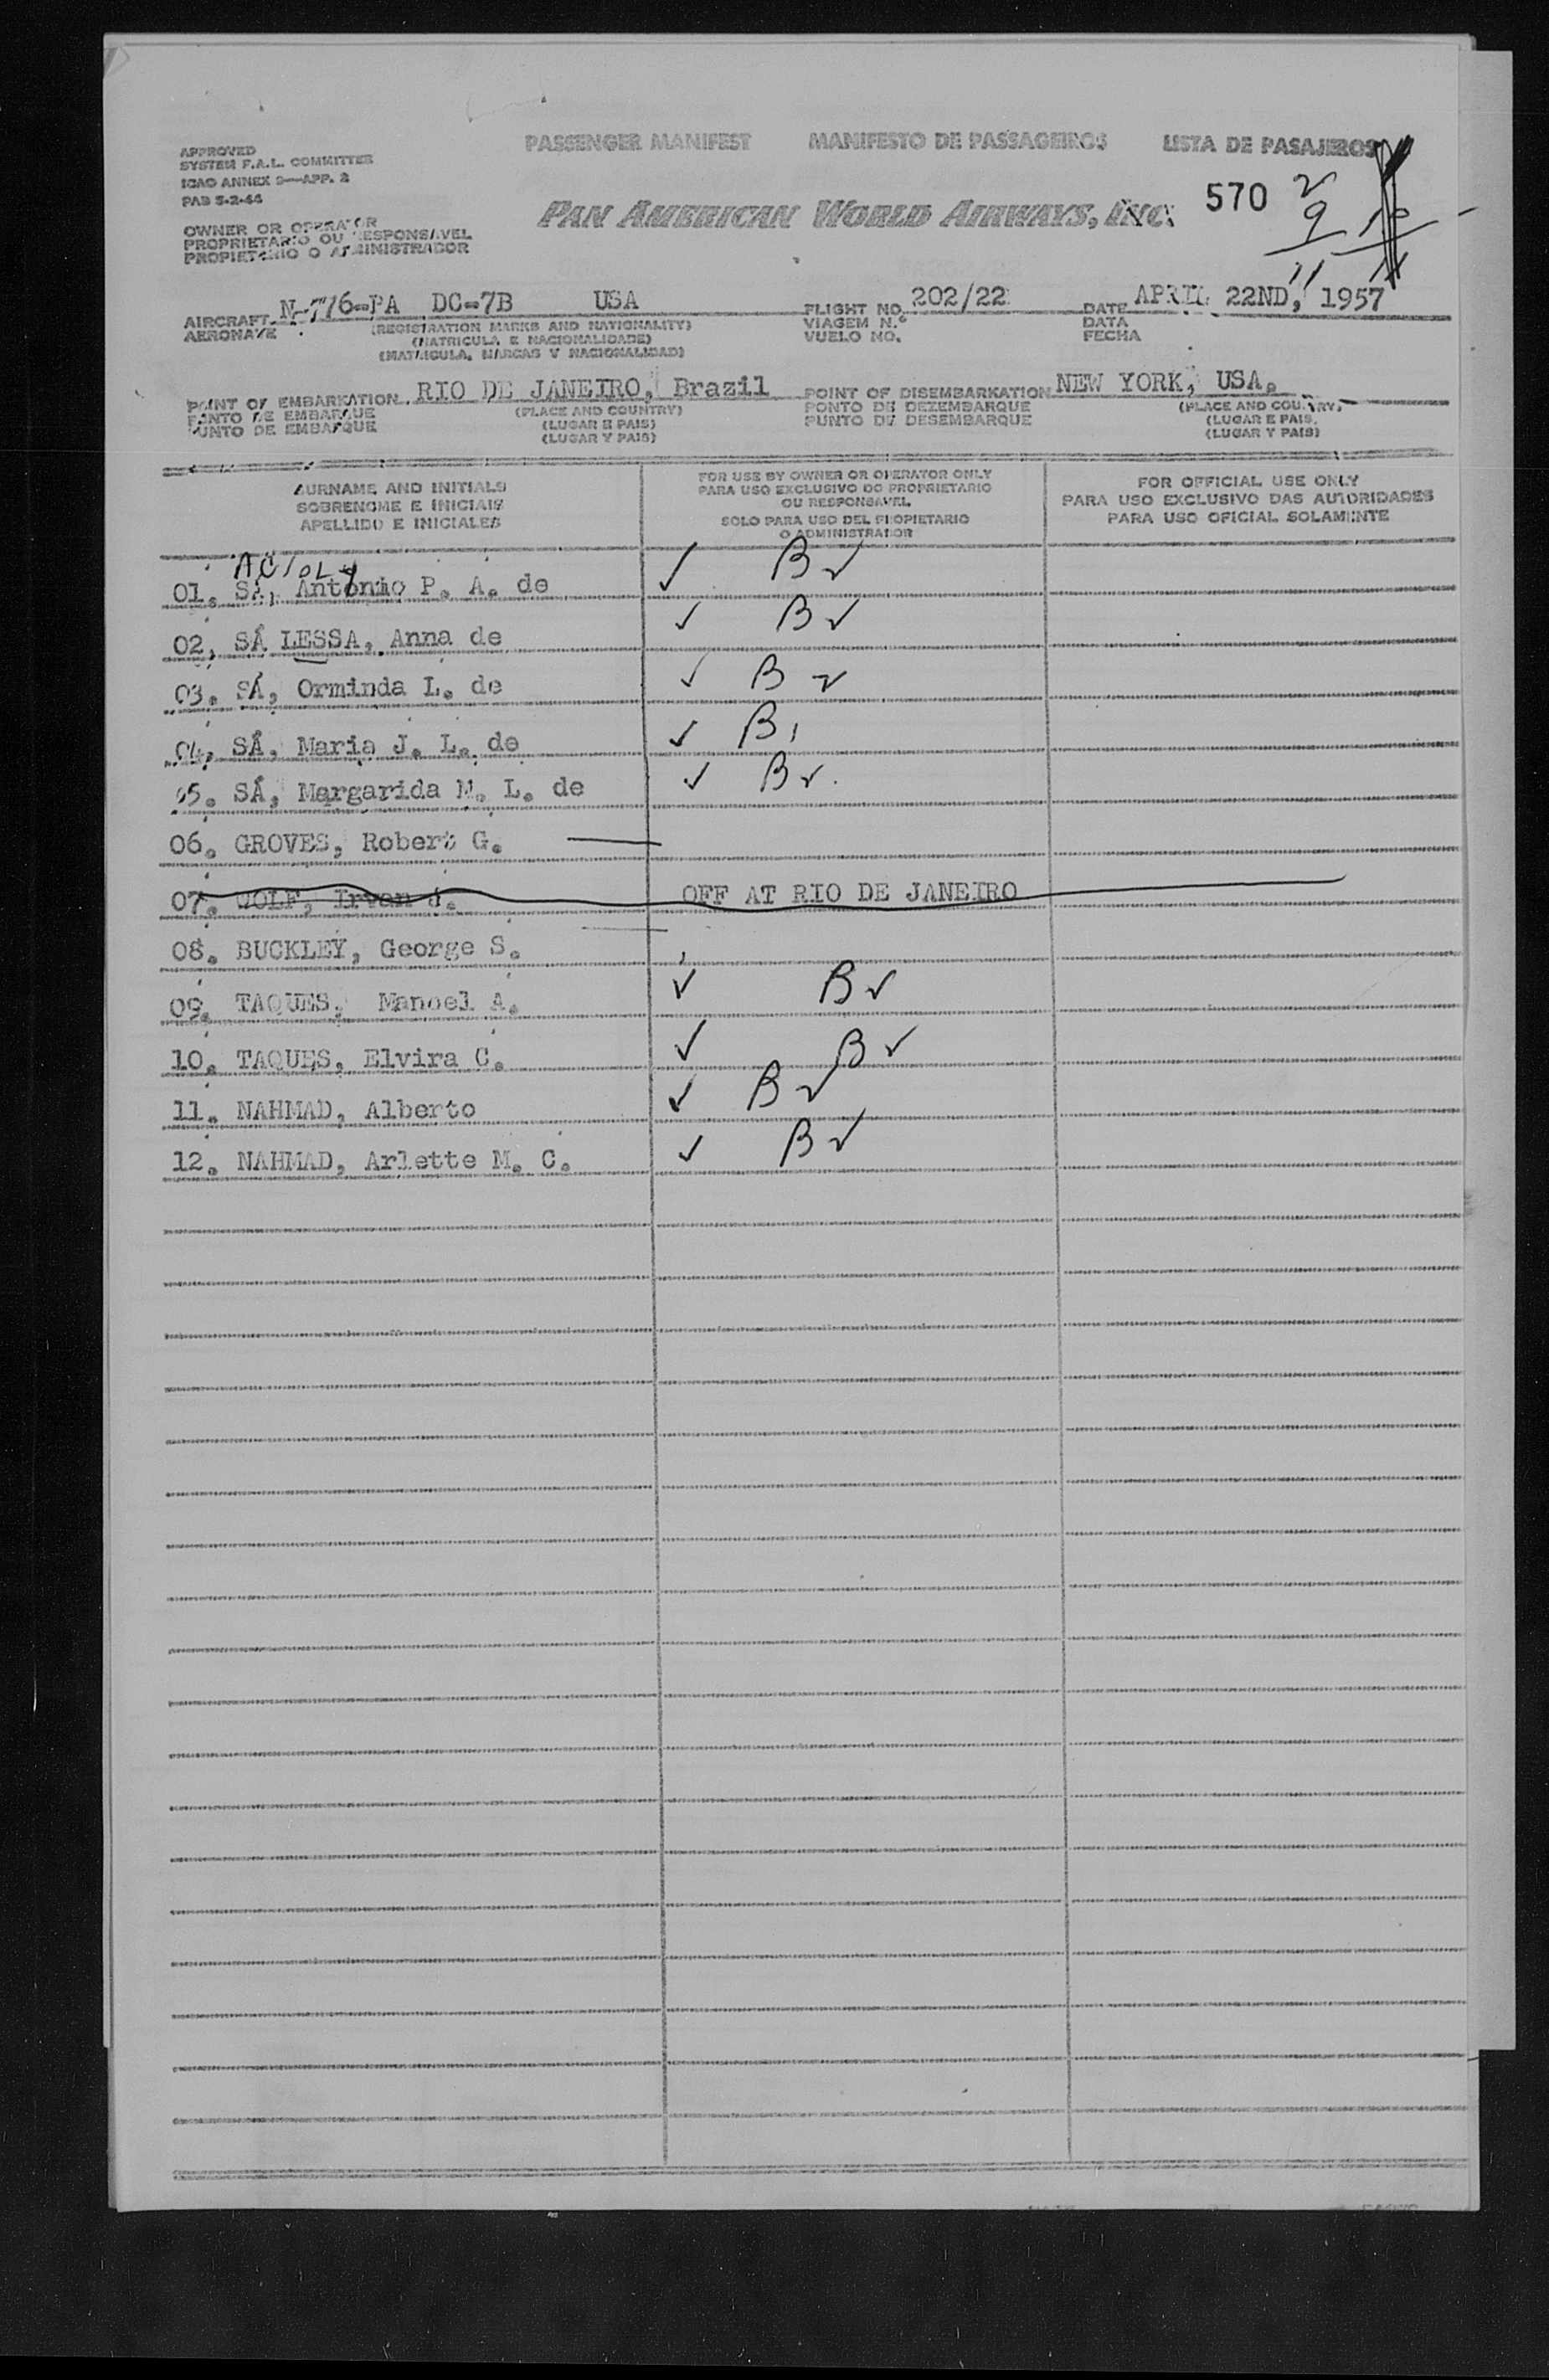 PASSENGER MANIFEST MANIFESTO DE PASSAGEIROS LISTA DE PASAJEROS
APPROVED
SYSTEM F.A.L. COMMITTEE
ICAO ANNEX 9—APP. 2
PAB 5-2-44
PAN AMERICAN WORLD AIRWAYS, INC.
570
2
9
11
OWNER OR OPERATOR
PROPRIETARIO OU RESPONSAVEL
PROPIETARIO O ADMINISTRADOR
AIRCRAFT N-776-PA DC-7B USA
AERONAVE
(REGISTRATION MARKS AND NATIONALITY)
(MATRICULA E NACIONALIDADE)
(MATRICULA, MARCAS Y NACIONALIDAD)
FLIGHT NO. 202/22
VIAGEM N.º
VUELO NO.
DATE APRIL 22ND, 1957
DATA
FECHA
POINT OF EMBARKATION RIO DE JANEIRO, Brazil
PONTO DE EMBARQUE
PUNTO DE EMBARQUE
(PLACE AND COUNTRY)
(LUGAR E PAIS)
(LUGAR Y PAIS)
POINT OF DISEMBARKATION NEW YORK, USA.
PONTO DE DEZEMBARQUE
PUNTO DE DESEMBARQUE
(PLACE AND COUNTRY)
(LUGAR E PAIS)
(LUGAR Y PAIS)
SURNAME AND INITIALS
SOBRENOME E INICIAIS
APELLIDO E INICIALES
FOR USE BY OWNER OR OPERATOR ONLY
PARA USO EXCLUSIVO DO PROPRIETARIO
OU RESPONSAVEL
SOLO PARA USO DEL PROPIETARIO
O ADMINISTRADOR
FOR OFFICIAL USE ONLY
PARA USO EXCLUSIVO DAS AUTORIDADES
PARA USO OFICIAL SOLAMENTE
ACIOLY
01. SÁ, Antonio P. A. de ✓ B ✓
02. SÁ LESSA, Anna de ✓ B ✓
03. SÁ, Orminda L. de ✓ B ✓
04. SÁ, Maria J. L. de ✓ B
05. SÁ, Margarida M. L. de ✓ B ✓
06. GROVES, Robert G.
07. WOLF, Irvan J. OFF AT RIO DE JANEIRO
08. BUCKLEY, George S.
09. TAQUES, Manoel A. ✓ B ✓
10. TAQUES, Elvira C. ✓ B ✓
11. NAHMAD, Alberto ✓ B ✓
12. NAHMAD, Arlette M. C. ✓ B ✓